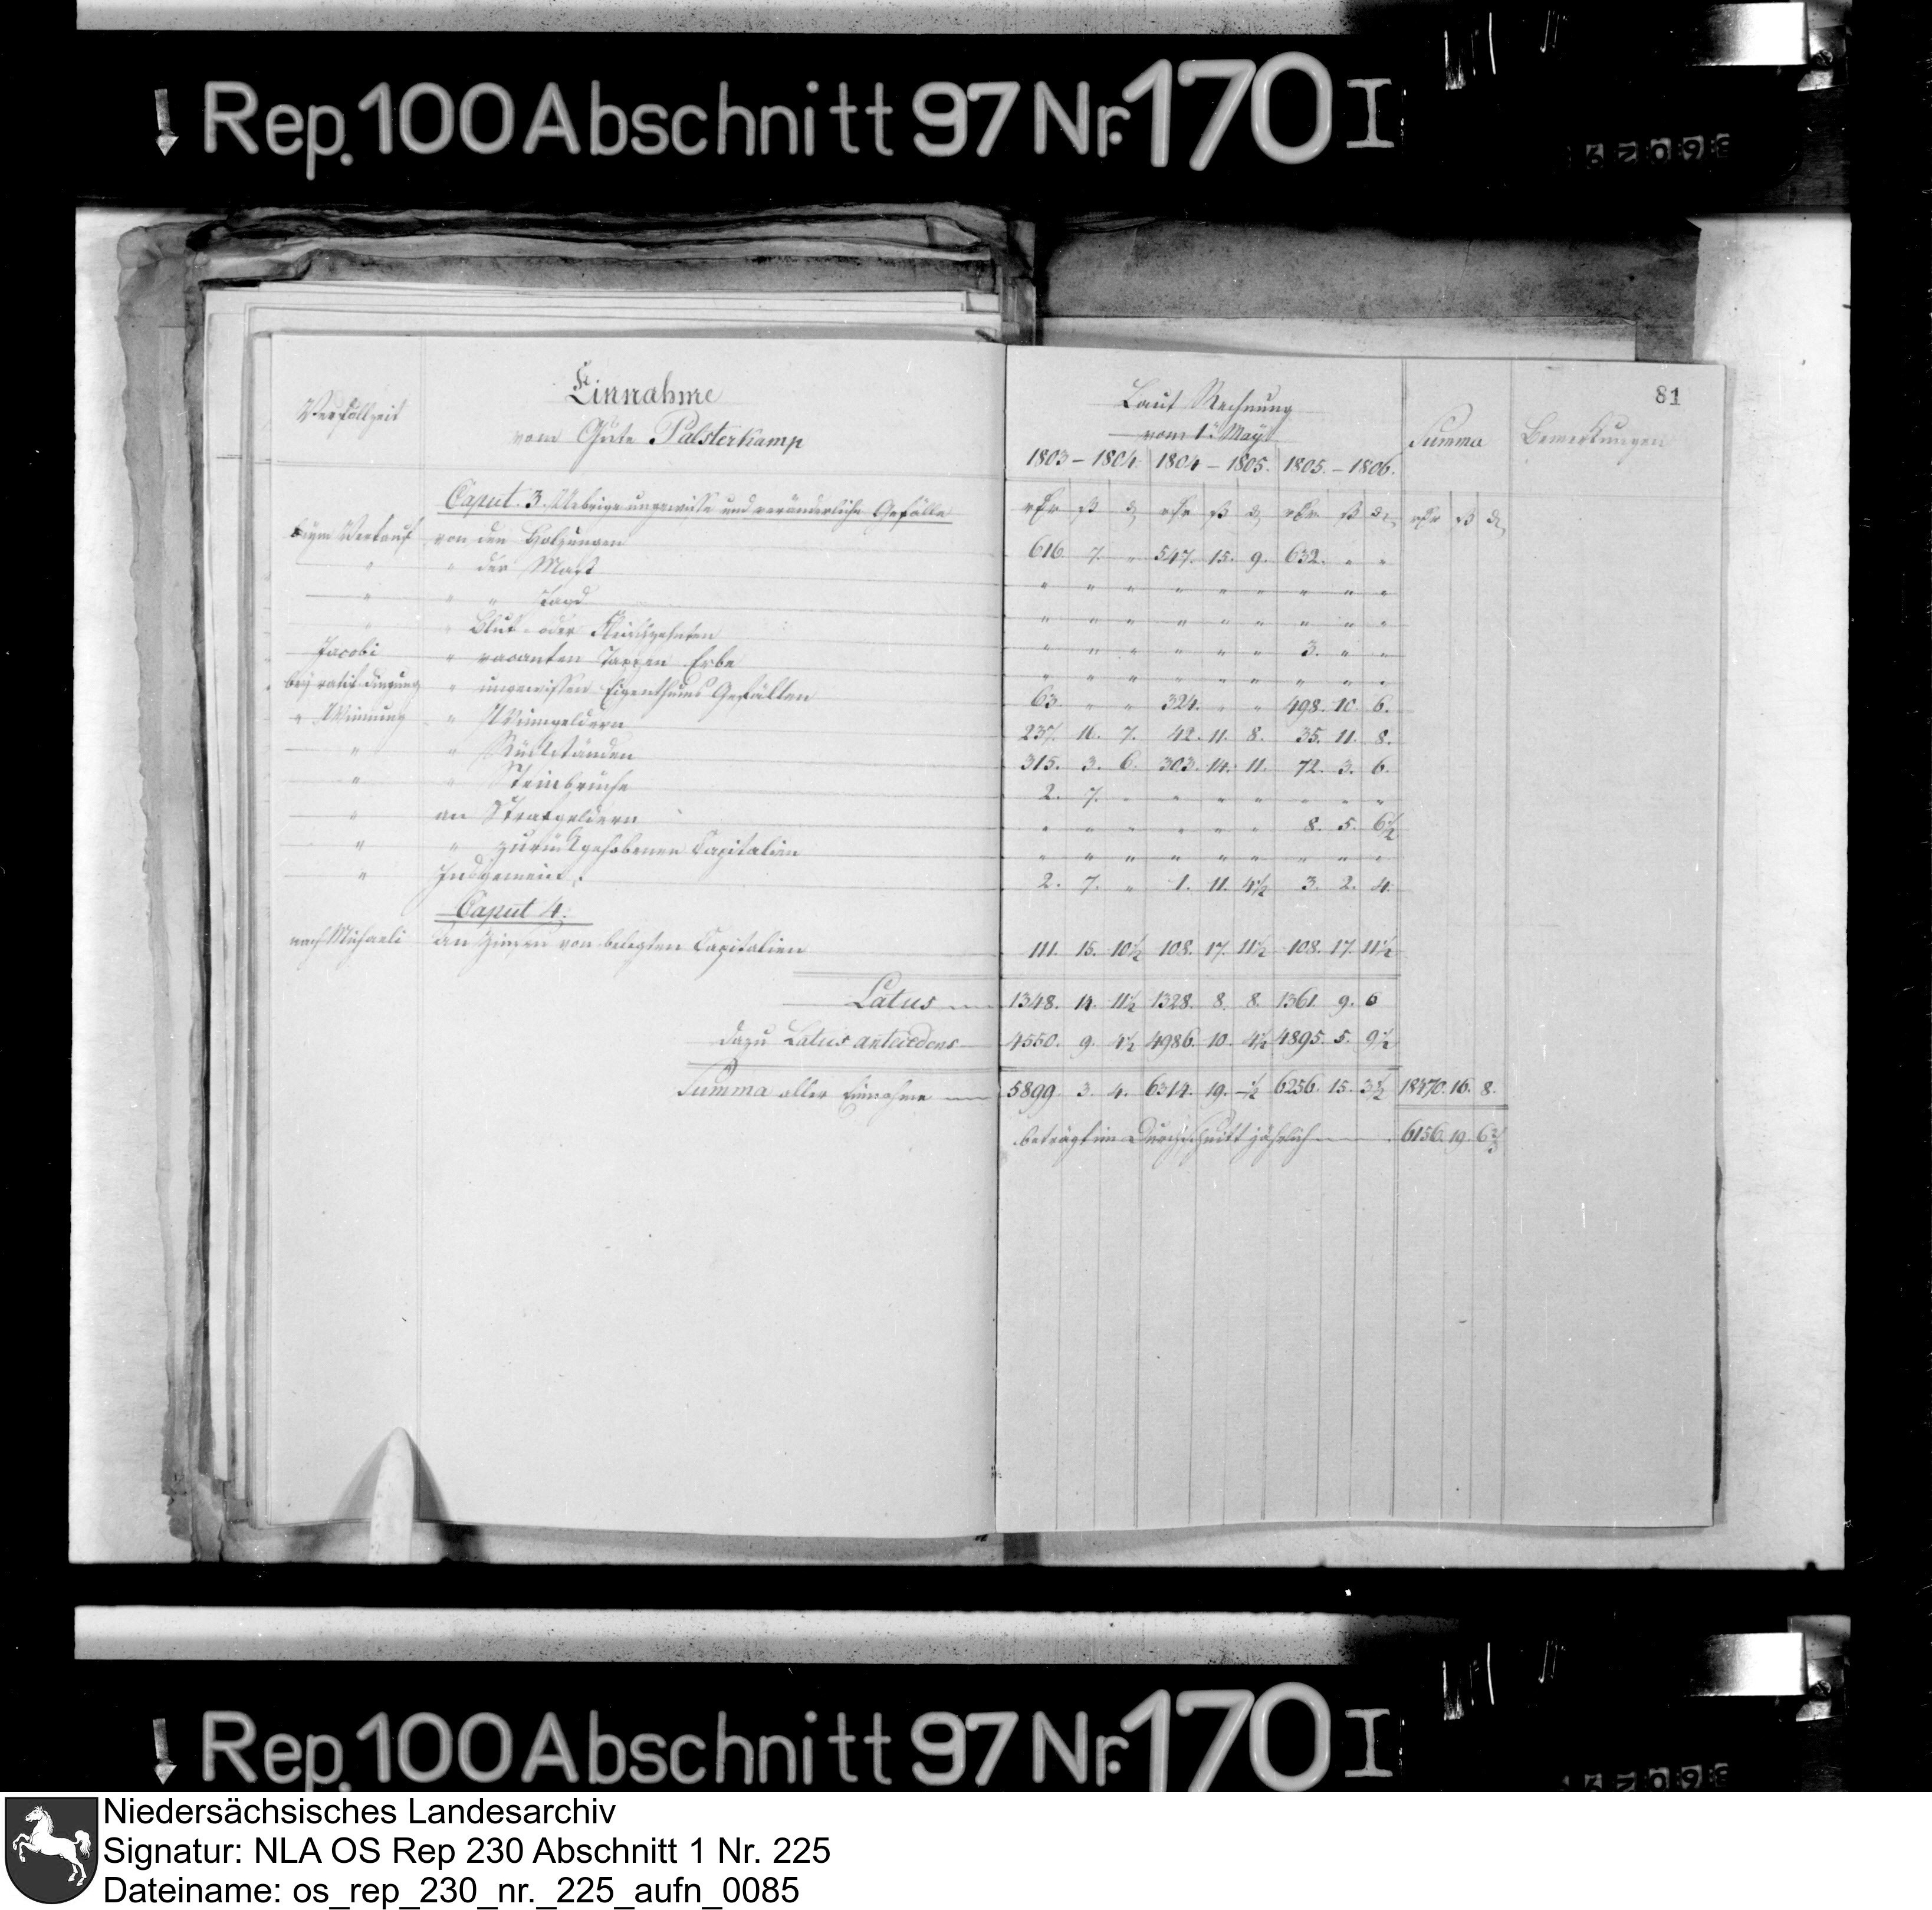 Rep. 100 Abschnitt 97 Nr. 170 I
81
Verfallzeit
Einnahme
vom Gute Palsterkamp
Laut Rechnung
vom 1t. May
Summa
Bemerkungen
1803 – 1804. 1804 – 1805. 1805. – 1806.
Caput. 3. Uebrige ungewisse und veränderliche Gefälle
rthr ß d rthr ß d rthr ß d rthr ß d
beym Verkauf von den Holzungen 616. 7. " 547. 15. 9. 632. " "
" " der Mast " " " " " " " " "
" " " Jagd " " " " " " " " "
" " Blut- oder Fleischzehnten " " " " " " 3. " "
Jacobi " vacanten Erbe " " " " " " " " "
bey " ungewissen Eigenthums Gefällen 63. " " 324. " " 498. 10. 6.
" Winnung " Winngeldern 237. 16. 7. 42. 11. 8. 35. 11. 8.
" " Rückständen 315. 3. 6. 303. 14. 11. 72. 3. 6.
" " Steinbruche 2. 7. " " " " " " "
" an Strafgeldern " " " " " " 8. 5. 6½
" " zurückgehobenen Capitalien " " " " " " " " "
" Insgemein. 2. 7. " 1. 11. 4½ 3. 2. 4.
Caput 4.
nach Michaeli an Zinsen von belegten Capitalien 111. 15. 10½ 108. 17. 11½ 108. 17. 11½
Latus 1348. 14. 11½ 1328. 8. 8. 1361. 9. 6
dazu Latus antecedens 4550. 9. 4½ 4986. 10. 4½ 4895. 5. 9½
Summa aller Einnahme 5899. 3. 4. 6314. 19. –½ 6256. 15. 3½ 18470. 16. 8.
beträgt im Durchschnitt jährlich 6156. 19. 6⅔
Rep. 100 Abschnitt 97 Nr. 170 I
Niedersächsisches Landesarchiv
Signatur: NLA OS Rep 230 Abschnitt 1 Nr. 225
Dateiname: os_rep_230_nr._225_aufn_0085